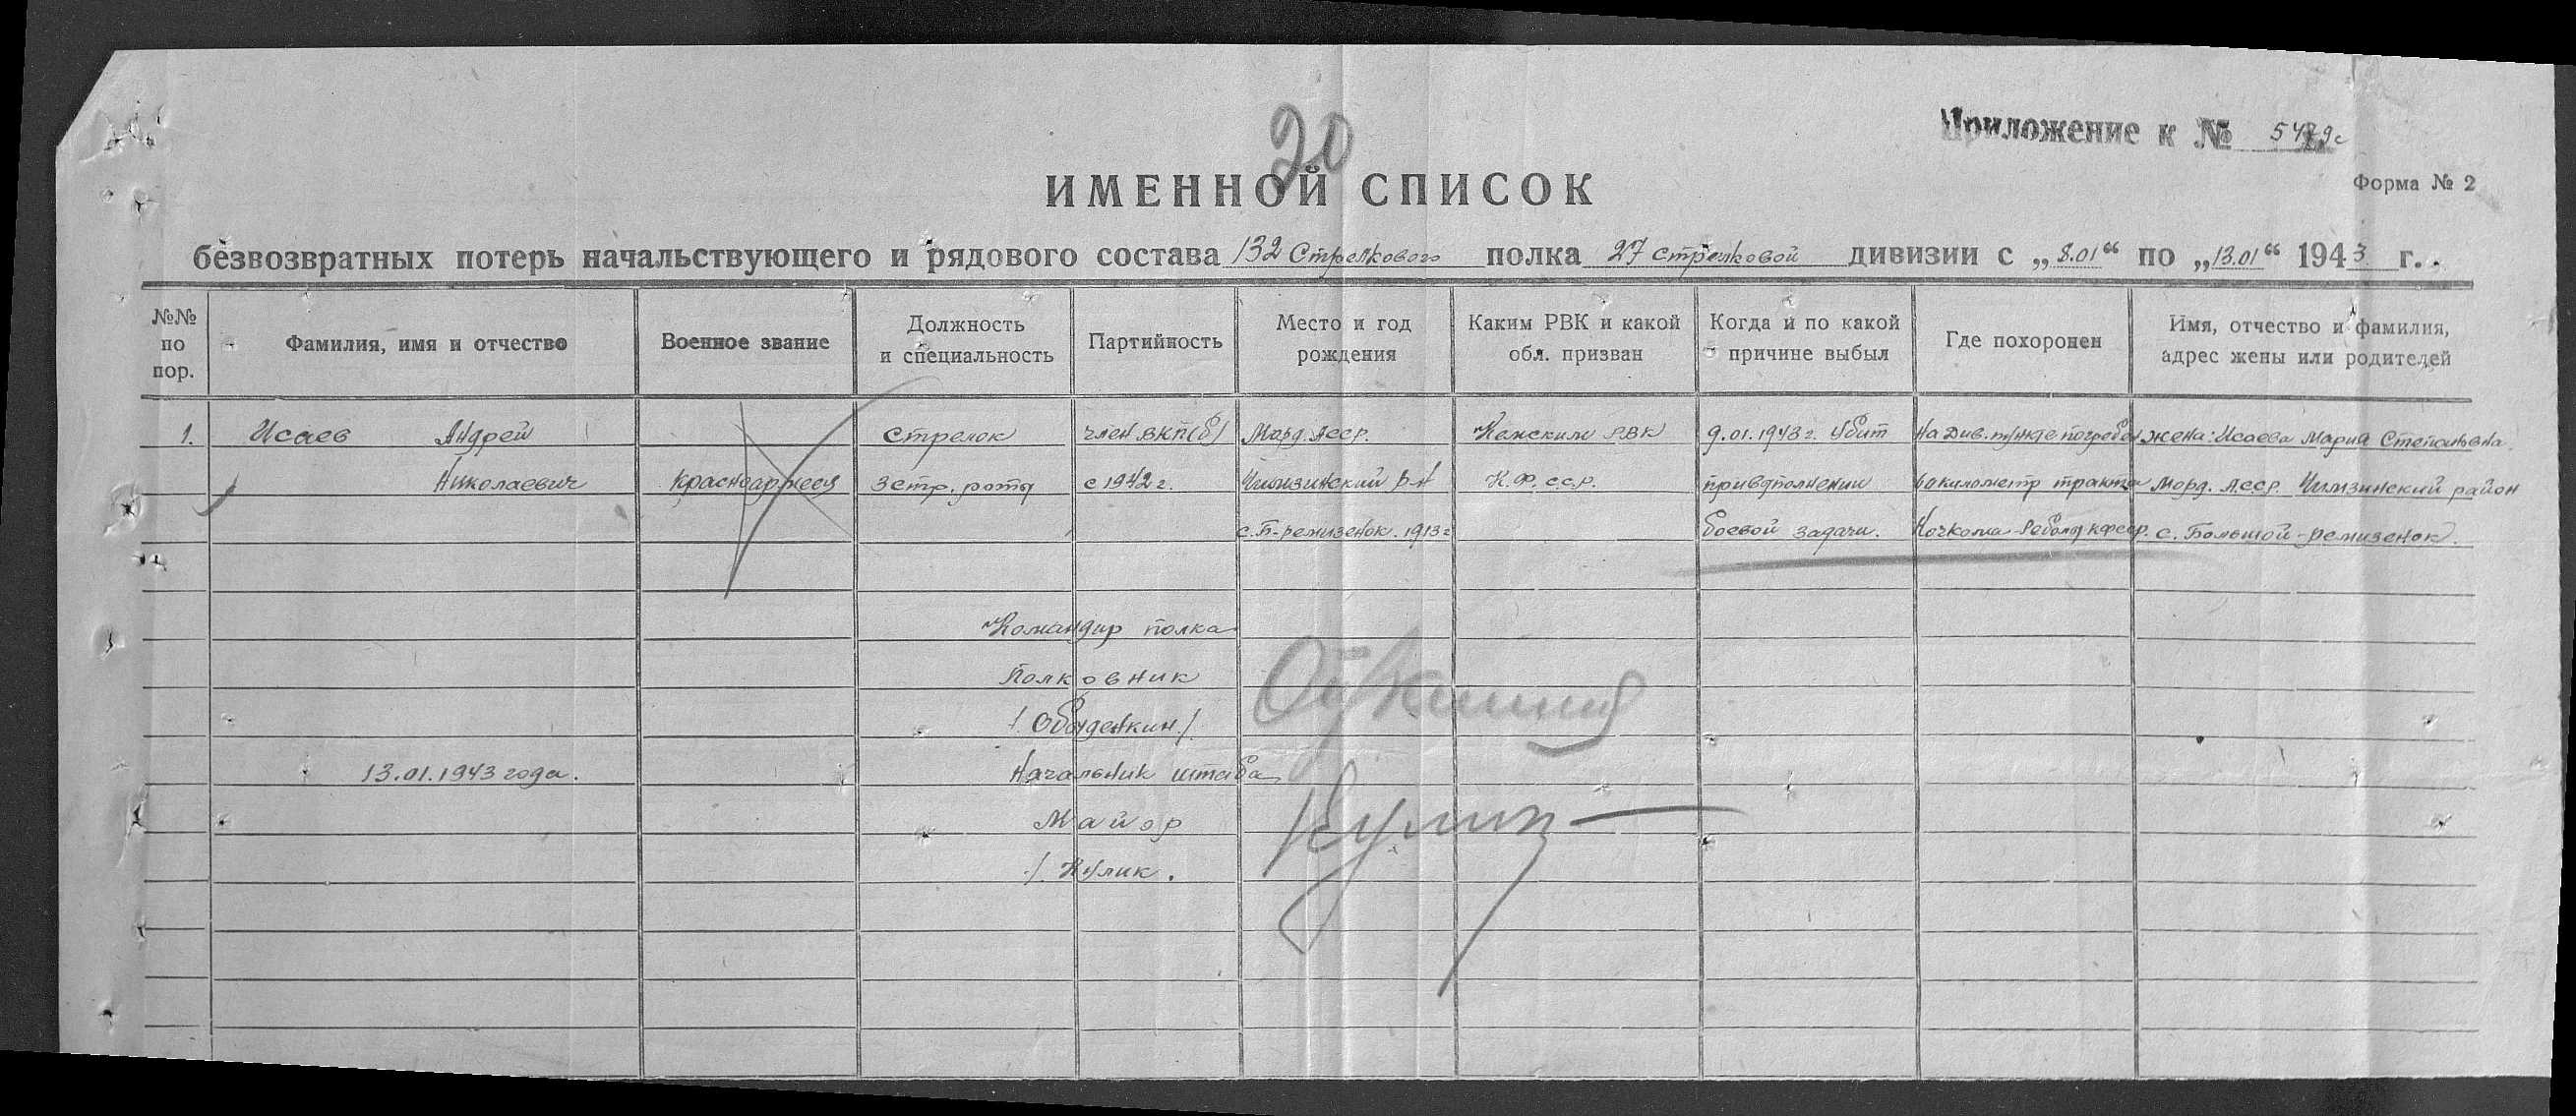 20
Приложение к №
Форма № 2
ИМЕННОЙ СПИСОК
безвозвратных потерь начальствующего и рядового состава 132 Стрелкового полка 27 стрелковой дивизии с „8.01“ по „13.01“ 1943 г.
№№ по пор.
Фамилия, имя и отчество
Военное звание
Должность и специальность
Партийность
Место и год рождения
Каким РВК и какой обл. призван
Когда и по какой причине выбыл
Где похоронен
Имя, отчество и фамилия, адрес жены или родителей
1. Исаев Андрей стрелок член ВКП(б) Морд. Асср. Кемским РВК 9.01.1943 г. Убит На Див. жена: Исаева Мария Степановна
Николаевич красноармеец 3 стр. роты с 1942 г. р-н К.Ф.с.с.р. при выполнении километр тракта Морд. А.сср. район
с. Б-ремизенок. 1913 г. боевой задачи. Кочкома-Реболы кфсср. с. Большой-ремизенок.
Командир полка
Полковник
/Обыденкин./
13.01.1943 года. Начальник штаба
Майор
/. Кулик.